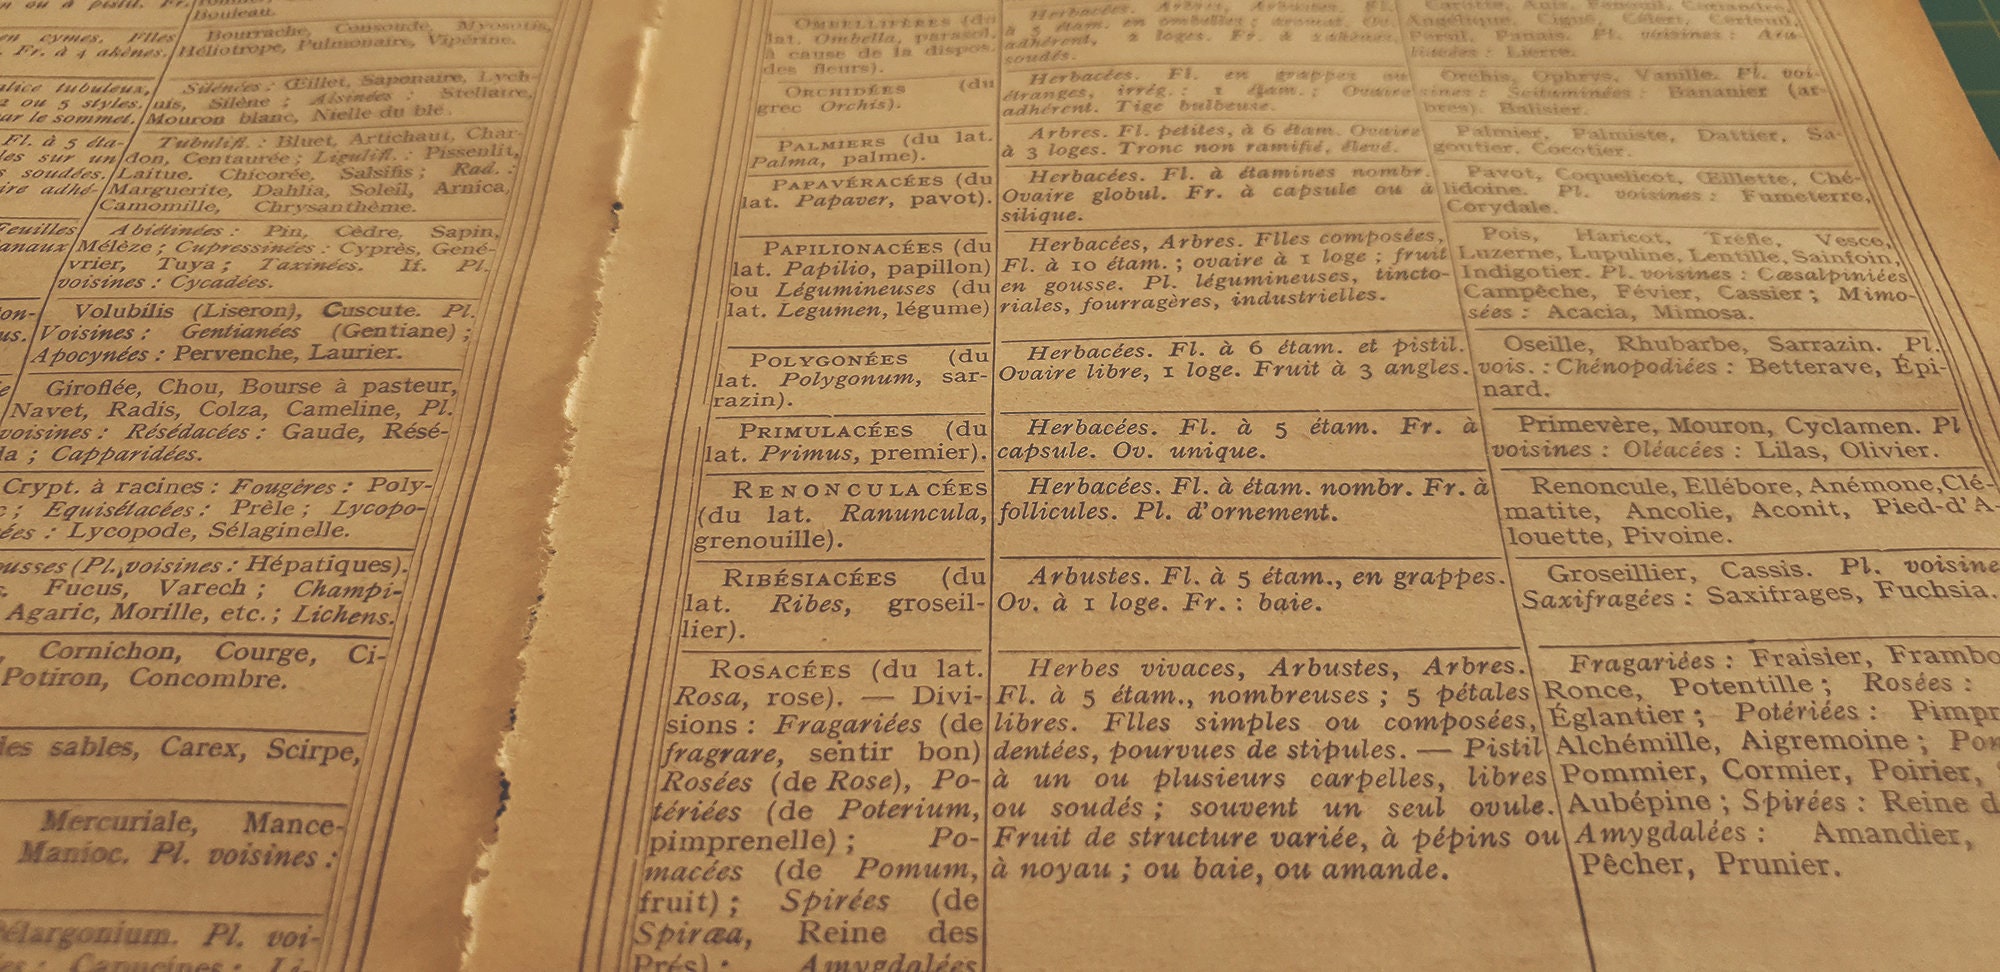 ou à pistil. Fr.
Bouleau.
en cymes. Flles
Fr. à 4 akènes.
Bourrache, Consoude, Myosotis,
Héliotrope, Pulmonaire, Vipérine.
alice tubuleux,
2 ou 5 styles.
ur le sommet.
Silénées : Œillet, Saponaire, Lych-
nis, Silène ; Alsinées : Stellaire,
Mouron blanc, Nielle du blé.
Fl. à 5 éta-
les sur un
s soudées.
ire adhé-
Tubulifl. : Bluet, Artichaut, Char-
don, Centaurée ; Ligulifl. : Pissenlit,
Laitue, Chicorée, Salsifis ; Rad. :
Marguerite, Dahlia, Soleil, Arnica,
Camomille, Chrysanthème.
Feuilles
anaux
Abiétinées : Pin, Cèdre, Sapin,
Mélèze ; Cupressinées : Cyprès, Gené-
vrier, Tuya ; Taxinées. If. Pl.
voisines : Cycadées.
on-
us.
Volubilis (Liseron), Cuscute. Pl.
Voisines : Gentianées (Gentiane) ;
Apocynées : Pervenche, Laurier.
Giroflée, Chou, Bourse à pasteur,
Navet, Radis, Colza, Cameline, Pl.
voisines : Résédacées : Gaude, Résé-
da ; Capparidées.
Crypt. à racines : Fougères : Poly-
; Equisétacées : Prêle ; Lycopo-
ées : Lycopode, Sélaginelle.
ousses (Pl. voisines : Hépatiques).
Fucus, Varech ; Champi-
Agaric, Morille, etc. ; Lichens.
Cornichon, Courge, Ci-
Potiron, Concombre.
des sables, Carex, Scirpe,
Mercuriale, Mance-
Manioc. Pl. voisines :
élargonium. Pl. voi-
es : Capucines : Li-
OMBELLIFÈRES (du
lat. Ombella, parasol,
à cause de la dispos.
des fleurs).
Herbacées, Arbres, Arbustes. Fl.
à 5 étam. en ombelles ; aromat. Ov.
adhérent, 2 loges. Fr. à 2 akènes
soudés.
Carotte, Anis, Fenouil, Coriandre,
Angélique, Ciguë, Céleri, Cerfeuil,
Persil, Panais. Pl. voisines : Ara-
liacées : Lierre.
ORCHIDÉES (du
grec Orchis).
Herbacées. Fl. en grappes ou
étranges, irrég. : 1 étam. ; Ovaire
adhérent. Tige bulbeuse.
Orchis, Ophrys, Vanille. Pl. voi-
sines : Scitaminées : Bananier (ar-
bres). Balisier.
PALMIERS (du lat.
Palma, palme).
Arbres. Fl. petites, à 6 étam. Ovaire
à 3 loges. Tronc non ramifié, élevé.
Palmier, Palmiste, Dattier, Sa-
goutier. Cocotier.
PAPAVÉRACÉES (du
lat. Papaver, pavot).
Herbacées. Fl. à étamines nombr.
Ovaire globul. Fr. à capsule ou à
silique.
Pavot, Coquelicot, Œillette, Ché-
lidoine. Pl. voisines : Fumeterre,
Corydale.
PAPILIONACÉES (du
lat. Papilio, papillon)
ou Légumineuses (du
lat. Legumen, légume)
Herbacées, Arbres. Flles composées,
Fl. à 10 étam. ; ovaire à 1 loge ; fruit
en gousse. Pl. légumineuses, tincto-
riales, fourragères, industrielles.
Pois, Haricot, Trèfle, Vesce,
Luzerne, Lupuline, Lentille, Sainfoin,
Indigotier. Pl. voisines : Cæsalpiniées
Campêche, Févier, Cassier ; Mimo-
sées : Acacia, Mimosa.
POLYGONÉES (du
lat. Polygonum, sar-
razin).
Herbacées. Fl. à 6 étam. et pistil.
Ovaire libre, 1 loge. Fruit à 3 angles.
Oseille, Rhubarbe, Sarrazin. Pl.
vois. : Chénopodiées : Betterave, Épi-
nard.
PRIMULACÉES (du
lat. Primus, premier).
Herbacées. Fl. à 5 étam. Fr. à
capsule. Ov. unique.
Primevère, Mouron, Cyclamen. Pl
voisines : Oléacées : Lilas, Olivier.
RENONCULACÉES
(du lat. Ranuncula,
grenouille).
Herbacées. Fl. à étam. nombr. Fr. à
follicules. Pl. d'ornement.
Renoncule, Ellébore, Anémone, Clé-
matite, Ancolie, Aconit, Pied-d'A-
louette, Pivoine.
RIBÉSIACÉES (du
lat. Ribes, groseil-
lier).
Arbustes. Fl. à 5 étam., en grappes.
Ov. à 1 loge. Fr. : baie.
Groseillier, Cassis. Pl. voisine
Saxifragées : Saxifrages, Fuchsia.
ROSACÉES (du lat.
Rosa, rose). — Divi-
sions : Fragariées (de
fragrare, sentir bon)
Rosées (de Rose), Po-
tériées (de Poterium,
pimprenelle) ; Po-
macées (de Pomum,
fruit) ; Spirées (de
Spiræa, Reine des
Prés) ; Amygdalées
Herbes vivaces, Arbustes, Arbres.
Fl. à 5 étam., nombreuses ; 5 pétales
libres. Flles simples ou composées,
dentées, pourvues de stipules. — Pistil
à un ou plusieurs carpelles, libres
ou soudés ; souvent un seul ovule.
Fruit de structure variée, à pépins ou
à noyau ; ou baie, ou amande.
Fragariées : Fraisier, Frambo
Ronce, Potentille ; Rosées :
Églantier ; Potériées : Pimpr
Alchémille, Aigremoine ; Pom
Pommier, Cormier, Poirier,
Aubépine ; Spirées : Reine d
Amygdalées : Amandier,
Pêcher, Prunier.